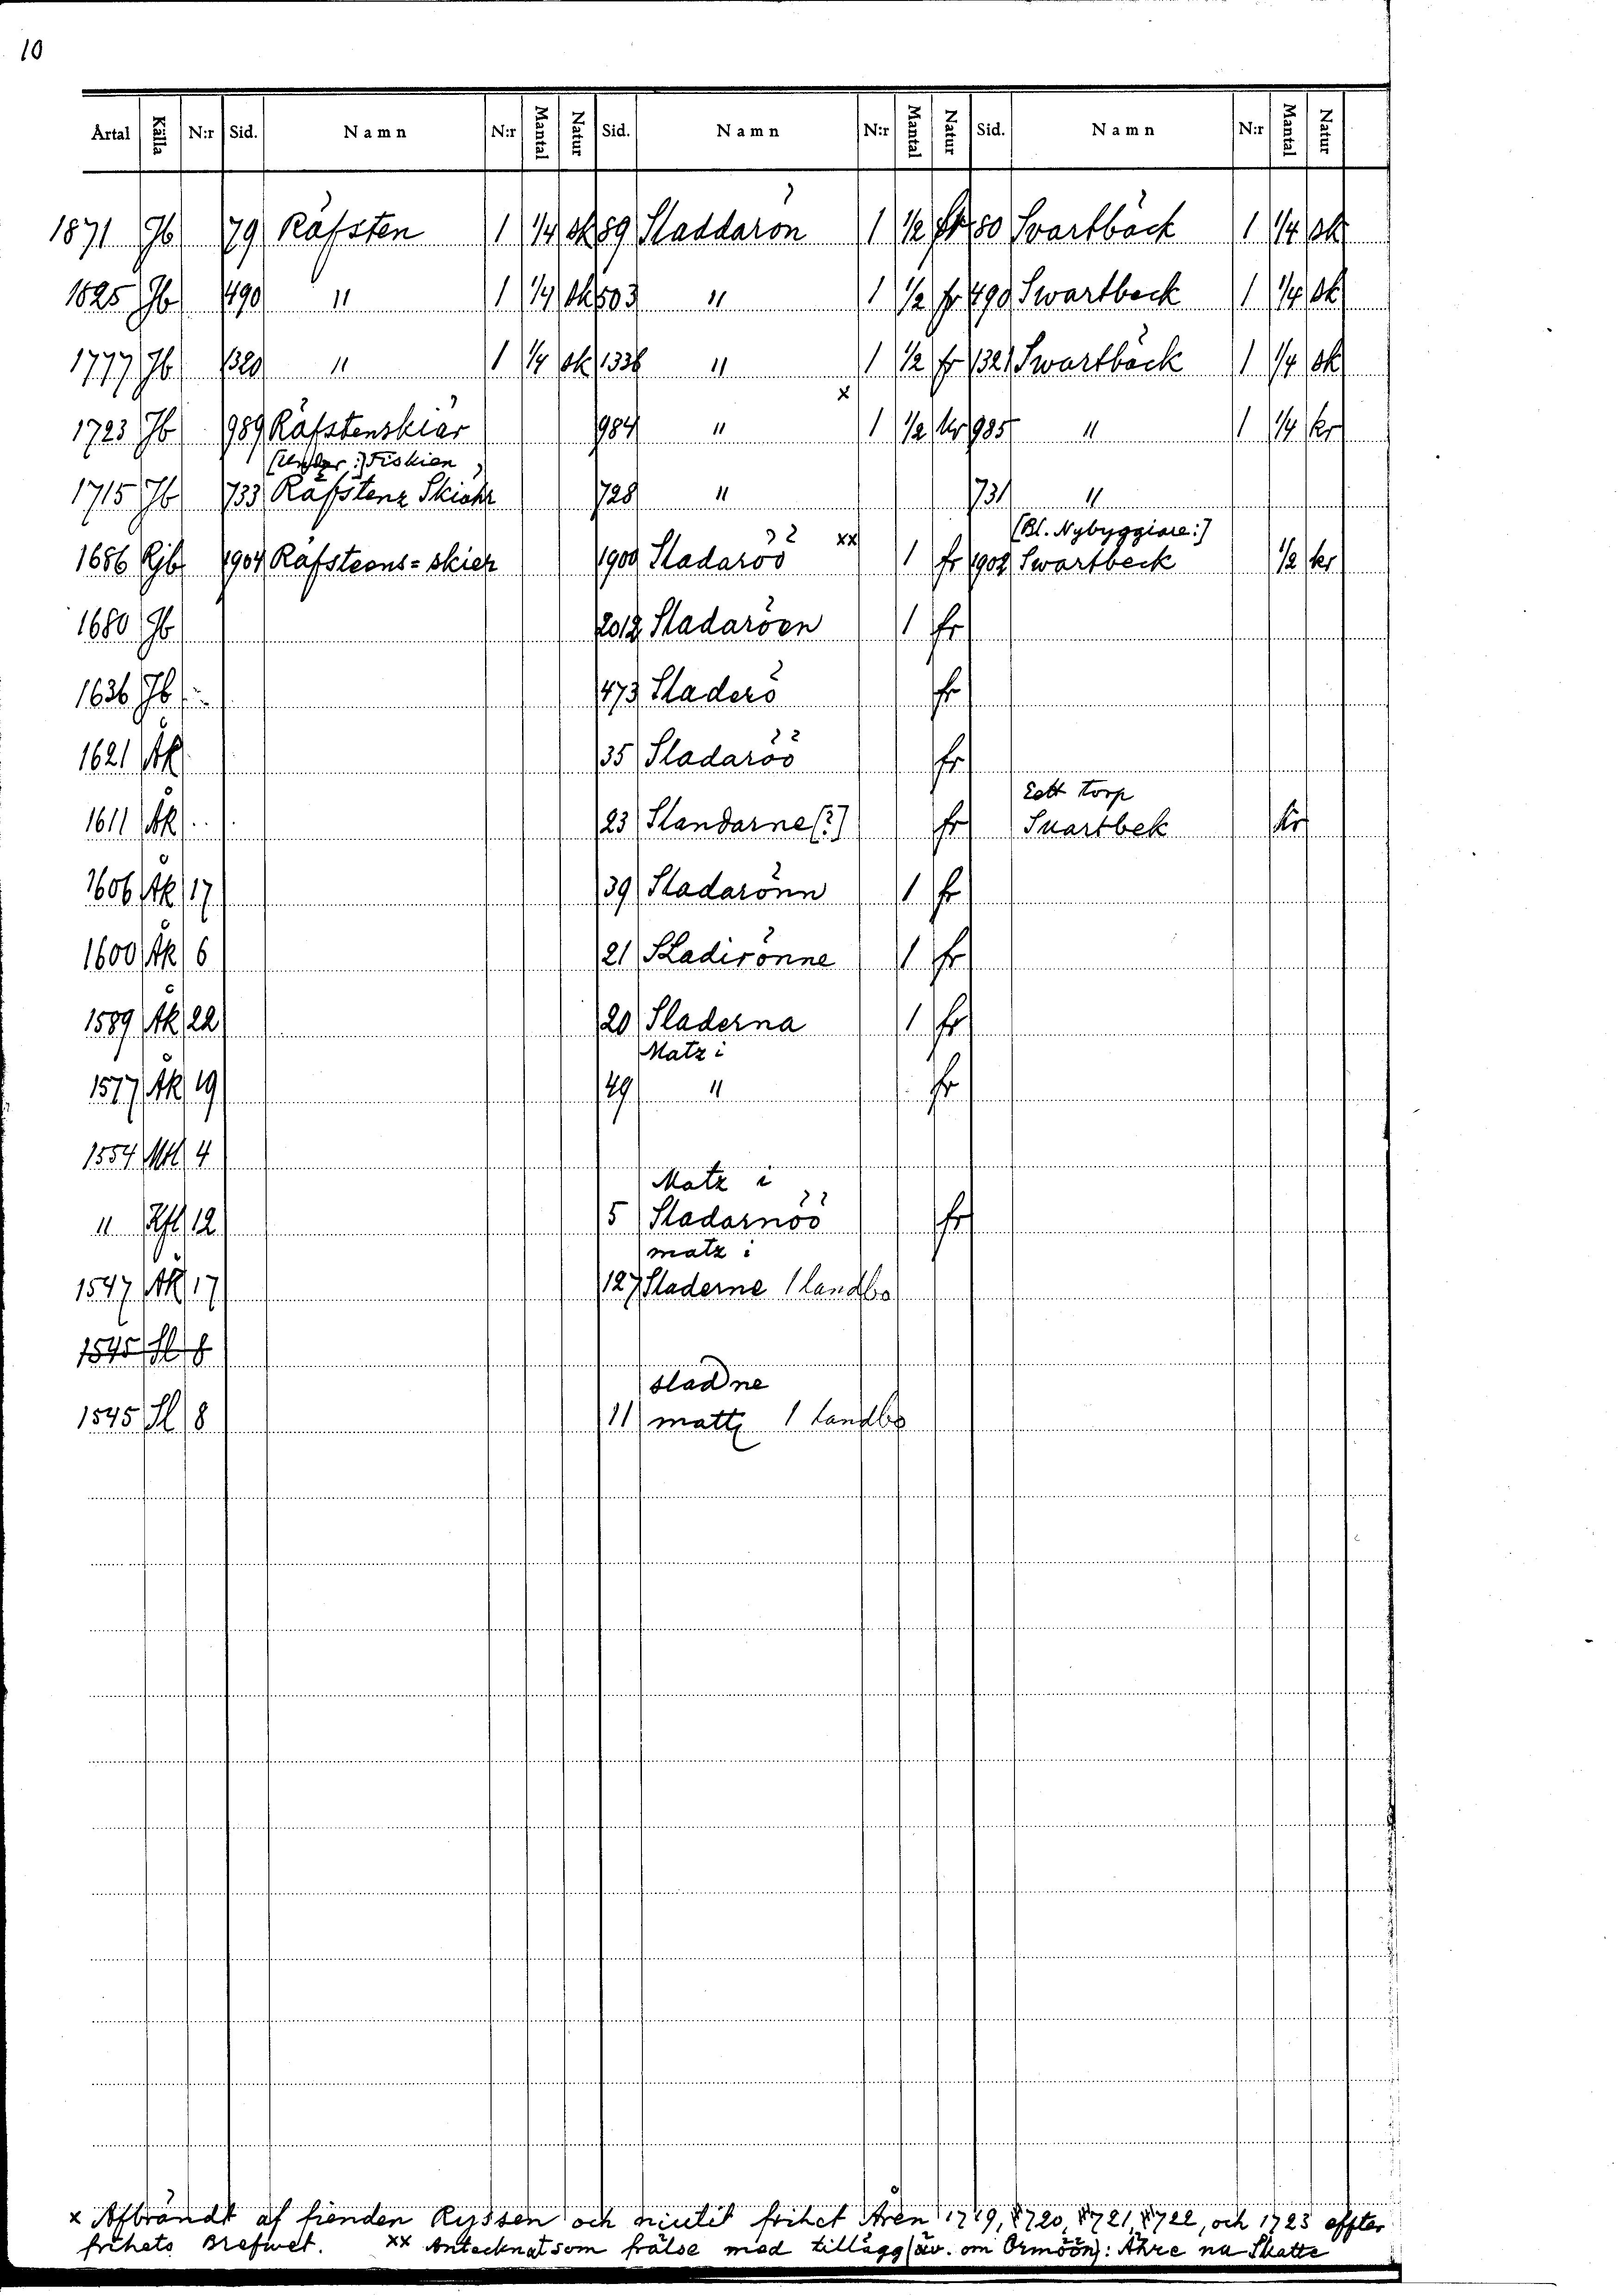 10
Artal Källa N:r Sid. Namn N:r Mantal Natur Sid. Namn N:r Mantal Natur Sid. Namn N:r Mantal Natur
1871 Jb 79 Räfsten 1 1/4 sk 89 Sladdarön 1 1/2 fr 80 Svartbäck 1 1/4 sk
1825 Jb 490 " 1 1/4 sk 503 " 1 1/2 fr 490 Swartbeck 1 1/4 sk
1777 Jb 1320 " 1 1/4 sk 1336 " 1 1/2 fr 1321 Swartbäck 1 1/4 sk
x
1723 Jb 989 Räfstenskiär 984 " 1 1/2 kr 985 " 1 1/4 kr
[Under:] Fiskien
1715 Jb 733 Räfstenz Skiähr 728 " 731 "
xx [Bl. Nybyggiare:]
1686 Rjb 1904 Räfsteens=skier 1900 Sladaröö 1 fr 1902 Swartbeck 1/2 kr
1680 Jb 2012 Sladaröen 1 fr
1636 Jb 473 Sladerö fr
1621 Åk 35 Sladaröö fr
Eett torp
1611 Åk 23 Slandarne [?] fr Suartbek kr
1606 Åk 17 39 Sladarönn 1 fr
1600 Åk 6 21 Sladirönne 1 fr
1589 Åk 22 20 Sladerna 1 fr
Matz i
1577 Åk 19 49 " fr
1554 Mtl 4
Matz i
" Kfl 12 5 Sladarnöö fr
matz i
1547 Åk 17 127 Sladerne 1 landbo
1545 Sl 8
sladne
1545 Sl 8 11 mattz 1 landbo
x Afbrändt af fienden Ryssen och niutit frihet Åren 1719, 1720, 1721, 1722, och 1723 effter
frihets Brefwet. xx Antecknat som frälse med tillägg (äv. om Ormöön): Ähre nu Skatte